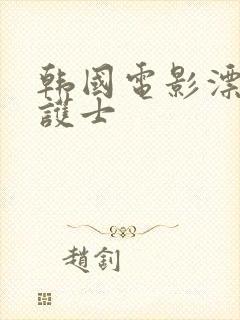 韩國電影漂
護士
趙釗